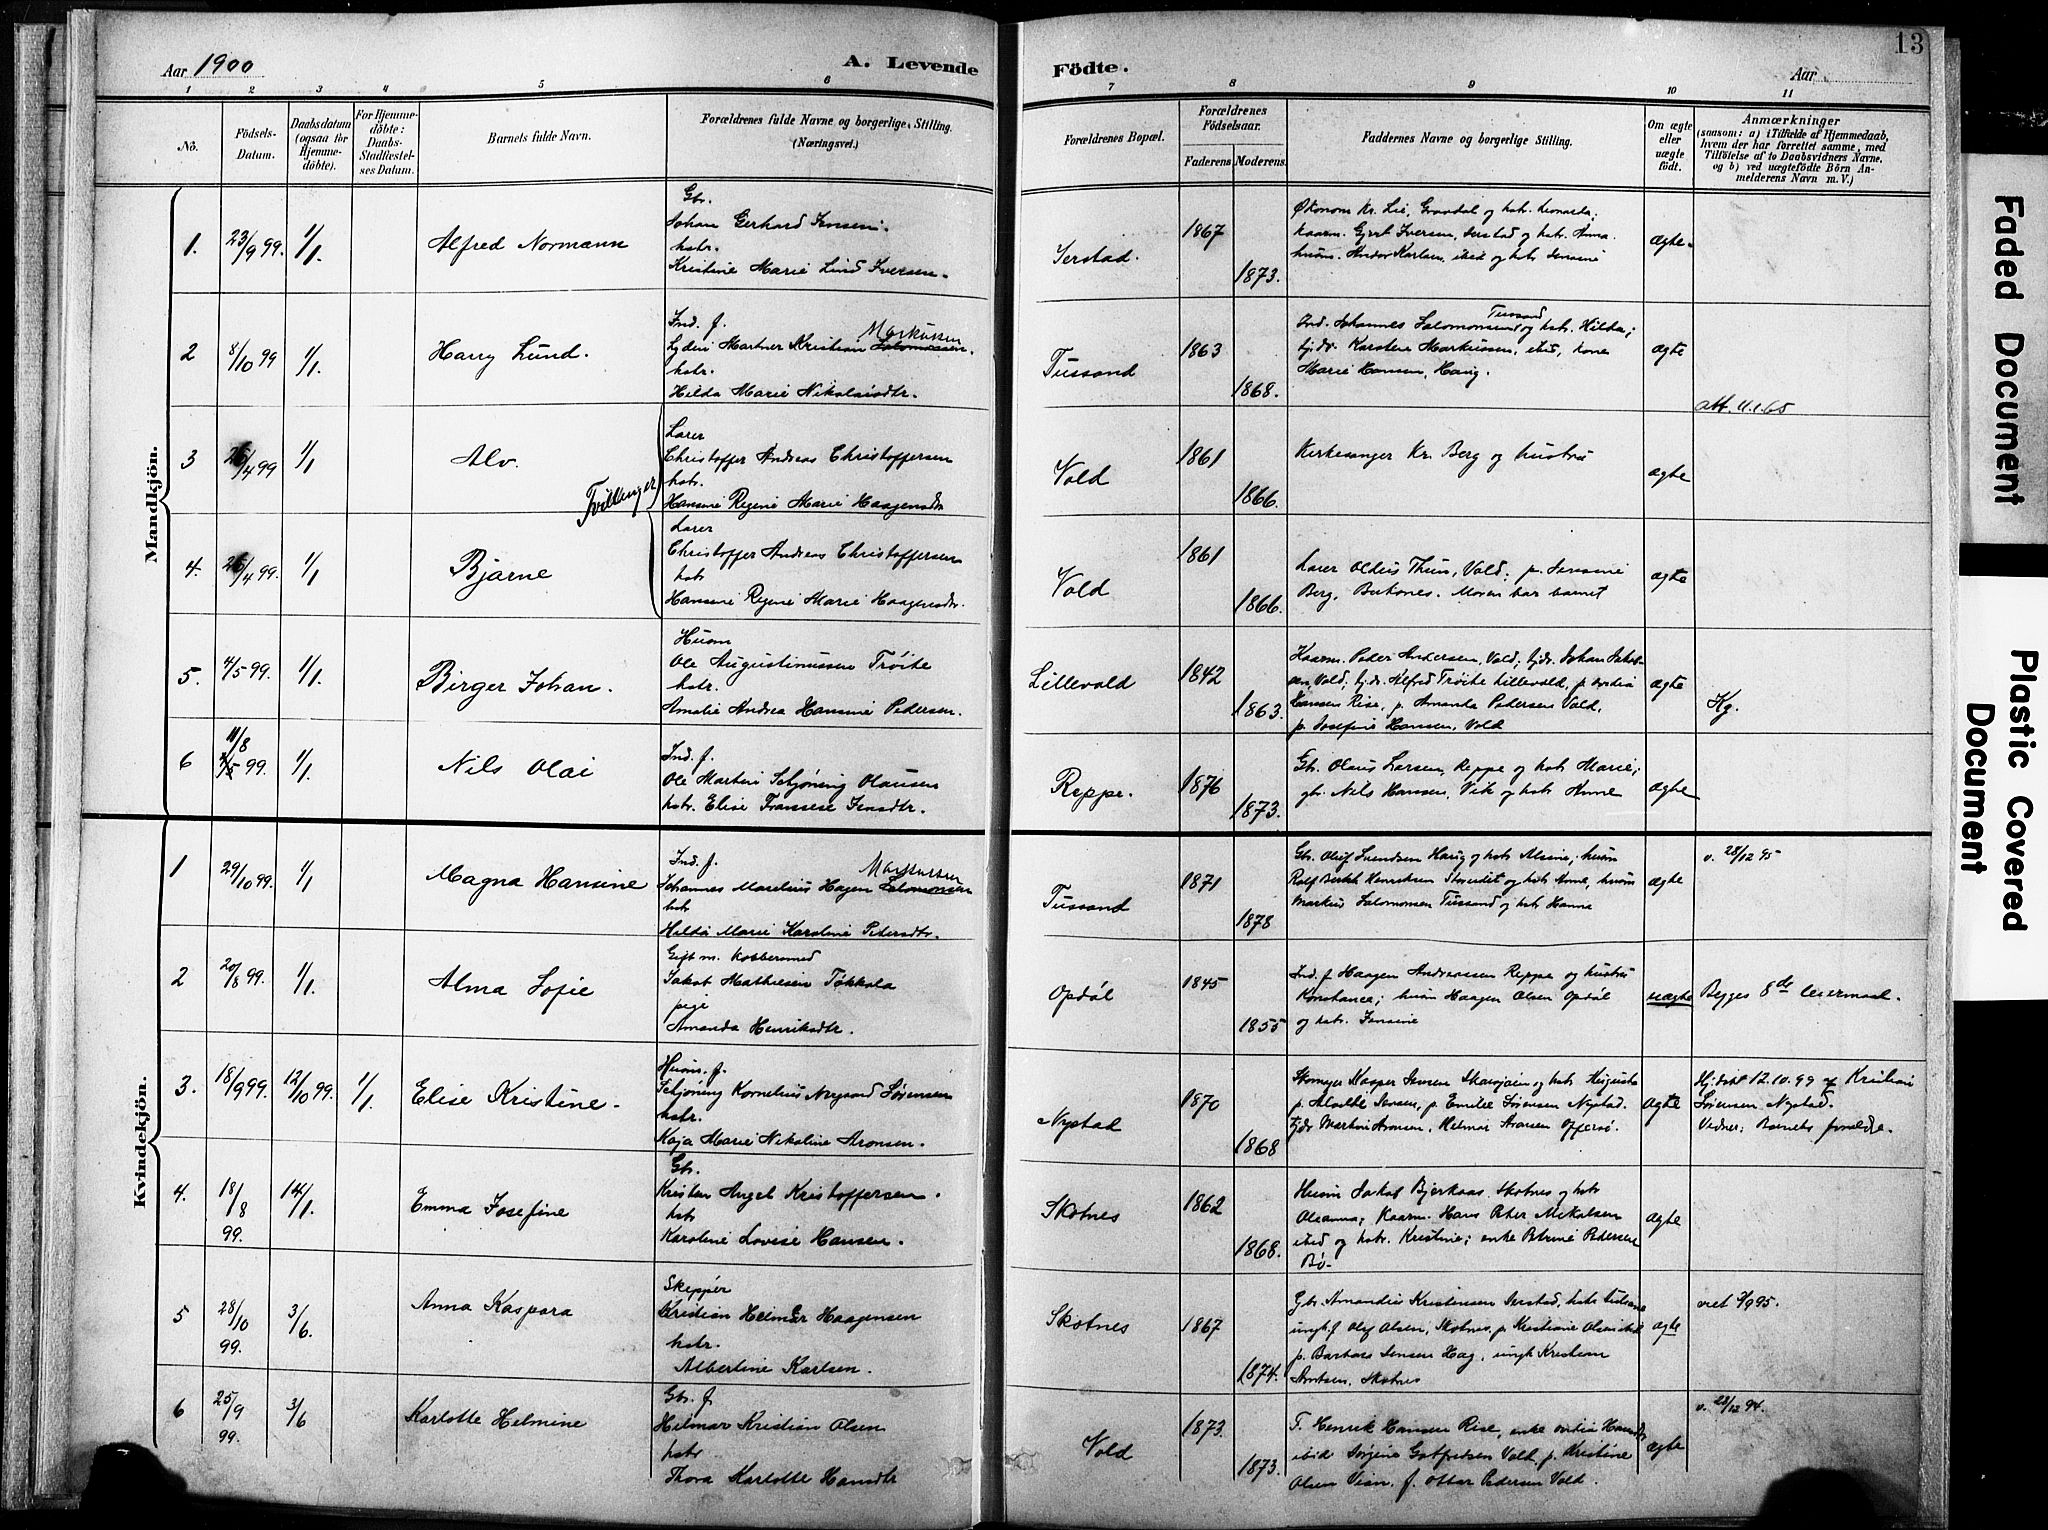 Aar 1900
A. Levende
Födte.
Aar
13
1 2 3 4 5 6 7 8 9 10 11
No.
Födsels-
Datum.
Daabsdatum
(ogsaa for
Hjemme-
döbte).
For Hjemme-
döbte:
Daabs-
Stadfæstel-
ses Datum.
Barnets fulde Navn.
Forældrenes fulde Navne og borgerlige Stilling.
(Næringsvei.)
Forældrenes Bopæl.
Forældrenes
Födselsaar.
Faderens. Moderens.
Faddernes Navne og borgerlige Stilling.
Om ægte
eller
uægte
födt.
Anmærkninger
(saasom: a) i Tilfælde af Hjemmedaab,
hvem der har forrettet samme, med
Tilföielse af to Daabsvidners Navne,
og b) ved uægtefödte Börn An-
melderens Navn m. V.)
Mandkjön.
1. 23/9 99. 1/1. Alfred Normann
Gbr.
Johan Gerhard Jensen
hstr.
Kristine Marie Lind Iversen.
Jerstad. 1867 1873.
Økonom Kr. Lie, Gravdal og hstr.
Kaarm. Gjert Iversen, Jerstad og hstr. Anna.
husm. Andor Karlsen, ibid og hstr Jensine
ægte.
2 8/10 99 1/1. Harry Lund.
Ind. f. Markussen
Lyder Martner Kristian Salomonsen.
hstr.
Hilda Marie Nikolaisdtr.
Tussand 1863 1868.
Tussand
Ind. Johannes Salomonsen og hstr. Hilda;
tjdr. Karsten Markussen, ibid, kone
Marie Hansen, Haug.
ægte
att. 11.1.65
3 26/4 99 1/1 Alv.
Tvillinger
Lærer
Christoffer Andreas Christoffersen
hstr.
Hansine Regine Marie Haagensdtr
Vold 1861 1866.
Kirkesanger Kr. Berg og hustru
ægte
4. 26/4 99. 1/1 Bjarne
Lærer
Christoffer Andreas Christoffersen
hstr
Hansine Regine Marie Haagensdtr.
Vold 1861 1866.
Lærer Oldus Thun, Vold; p. Jensine
Berg, Buksnes. Moren bar barnet
ægte
5. 4/5 99. 1/1. Birger Johan.
Husm
Ole Augustinussen Tröite
hstr.
Amalie Andrea Hansine Pedersen.
Lillevold 1842 1863.
Kaarm. Peder Andersen, Vold; tjdr. Johan Jakob-
sen, Vold; tjdr. Alfred Tröite Lillevold, p.
Hansen Rise, p. Amanda Pedersen Vold,
p. Josefine Hansen, Vold
ægte
Kg.
6 11/8 99. 1/1. Nils Olai
Ind. f.
Ole Martin Schjöning Olausen
hstr. Elise Fransese
Reppe. 1876 1873.
Gbr. Olaus Larsen, Reppe og hstr Marie;
gbr. Nils Hansen, Vik og hstr Anne
ægte
Kvindekjön.
1 29/10 99. 1/1 Magna Hansine
Ind. f. Markussen
Johannes Marelius Hagen Salomonsen
hstr
Hilda Marie Karoline Petersdtr.
Tussand 1871 1878
Gbr. Oluf Svendsen Haug og hstr Alsine; husm
Rolf Henriksen og hstr Anne, husm
Markus Salomonsen Tussand og hstr Hanna
ægte
v. 28/12 95
2 20/8 99. 1/1. Alma Sofie
Gift m. kobbersmed
Jakob Mathisen Tökkola
pige
Amanda Henriksdtr.
Opdöl 1845 1855
Ind. f Haagen Andreassen Reppe og hustru
Konstance; husm Haagen Olsen Opdöl
og hstr. Jensine
uægte
Begges 8de leiermaal.
3. 18/9 99. 12/10 99. 1/1. Elise Kristine.
Husm. f.
Schjöning Kornelius Sörensen
hstr.
Kaja Marie Nikoline Aronsen.
Nystad 1870 1868
Skomager Kasper Jensen og hstr Augusta
p. Jensen, p. Emilie Sörensen Nystad.
tjdr Martin Aronsen, Helmar Aronsen Offersö.
ægte
Hj.döbt 12.10.99 af Kristian
Sörensen Nystad.
Vidner: Barnets forældre.
4. 18/8 99. 14/1. Emma Josefine
Gbr.
Kristen Angel Kristoffersen.
hstr
Karoline Lovise Hansen.
Skotnes 1862 1868.
Husm Jakob Bjerkaas, Skotnes og hstr
Olsanna; Kaarm. Hans Peter Nikolsen
ibid og hstr. Kristine; enke Petrine Pedersen
Bö.
ægte
5 28/10 99. 3/6. Anna Kaspara
Skipper
Kristian Helmer Haagensen
hstr.
Albertine Karlsen.
Skotnes 1867 1874.
Gbr. Amandus Kristensen Jerstad, hstr
ungk. f Olef Olsen, Skotnes, p. Kristiane Olsen ibid
p. Barbara Jensen Hag, ungk Kristian
Arntsen, Skotnes
ægte
viet 9/9 95.
6 25/9 99. 3/6 Karlotte Helmine
Gbr. f
Helmar Kristian Olsen
hstr
Thora Karlotte Hansdtr
Vold 1873. 1873.
F. Henrik Hansen Rise, enke
ibid Jörgine Gotfredsen Vold, p. Kristine
Olsen Vian, f. Ottar Pedersen Vold.
ægte
v. 28/12 94.
Faded Document
Plastic Covered
Document